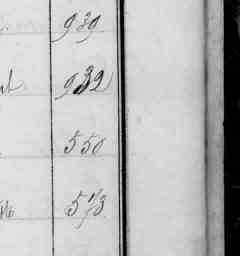 939
932
550
573